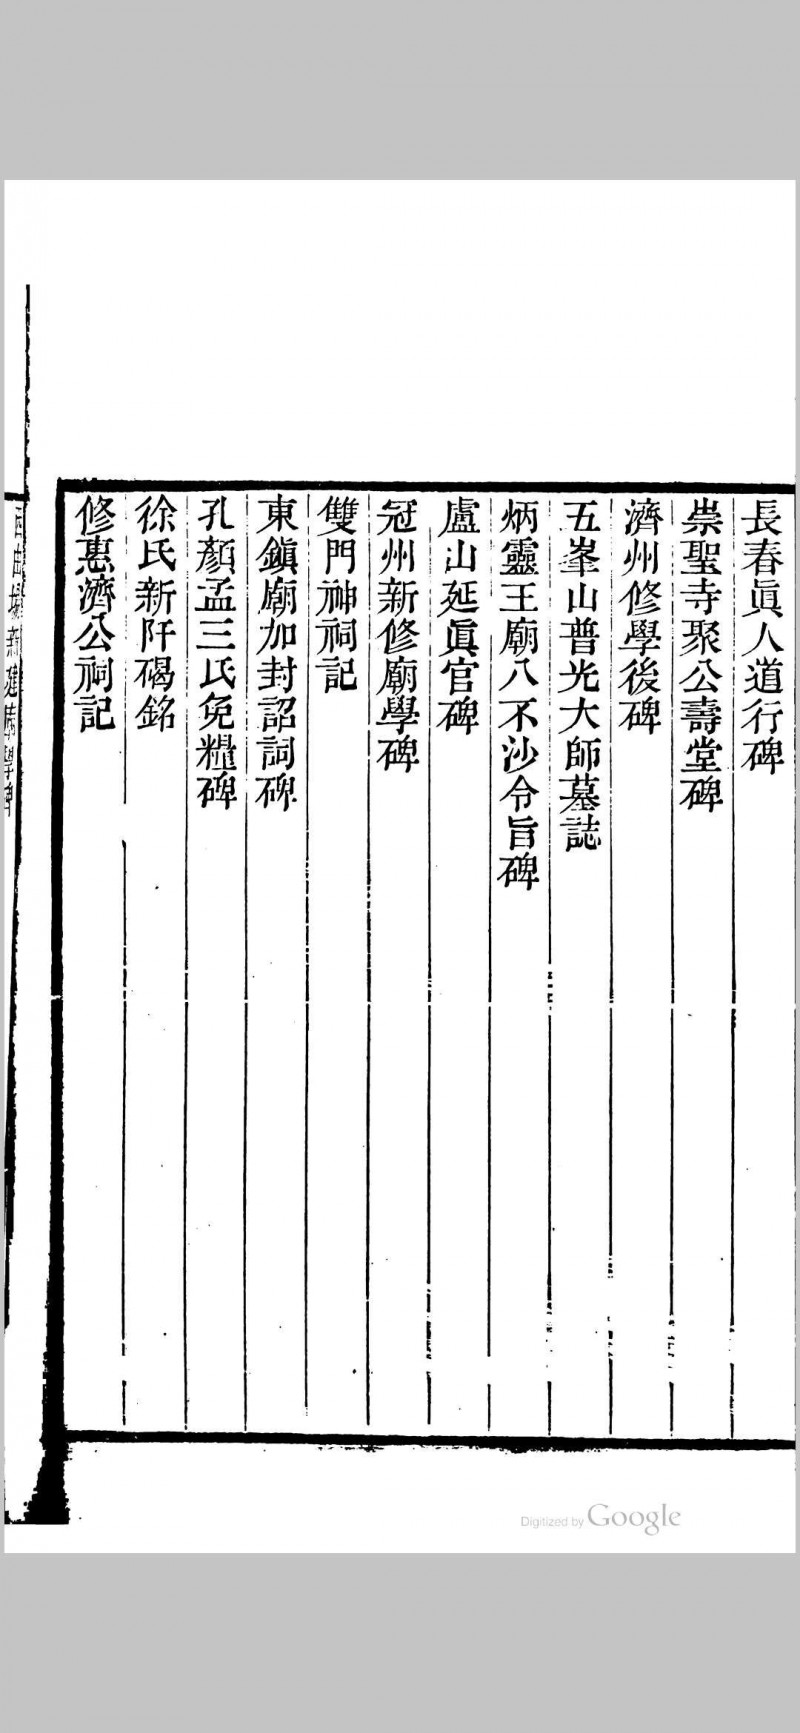 長春眞人道行碑
崇聖寺聚公壽堂碑
濟州修學後碑
五峯山普光大師墓誌
炳靈王廟八不沙令旨碑
盧山延眞官碑
冠州新修廟學碑
雙門神祠記
東鎭廟加封詔詞碑
孔顏孟三氏免糧碑
徐氏新阡碣銘
修惠濟公祠記
Digitized by Google